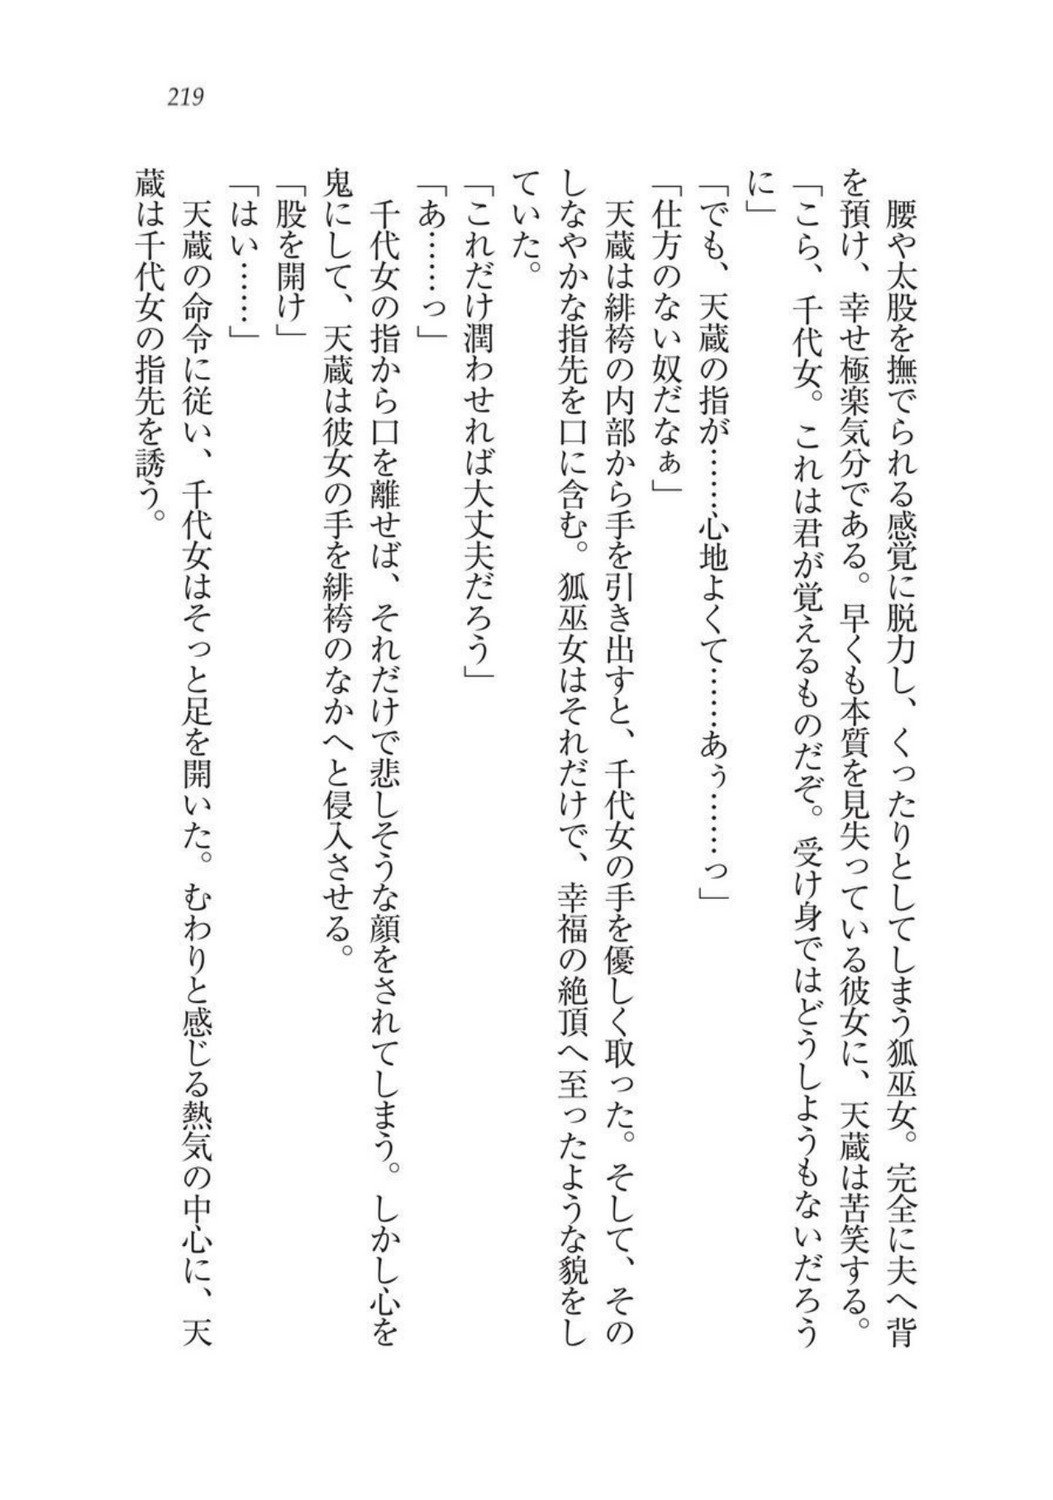 219
　腰や太股を撫でられる感覚に脱力し、くったりとしてしまう狐巫女。完全に夫へ背
を預け、幸せ極楽気分である。早くも本質を見失っている彼女に、天蔵は苦笑する。
「こら、千代女。これは君が覚えるものだぞ。受け身ではどうしようもないだろう
に」
「でも、天蔵の指が……心地よくて……あぅ……っ」
「仕方のない奴だなぁ」
　天蔵は緋袴の内部から手を引き出すと、千代女の手を優しく取った。そして、その
しなやかな指先を口に含む。狐巫女はそれだけで、幸福の絶頂へ至ったような貌をし
ていた。
「これだけ潤わせれば大丈夫だろう」
「あ……っ」
　千代女の指から口を離せば、それだけで悲しそうな顔をされてしまう。しかし心を
鬼にして、天蔵は彼女の手を緋袴のなかへと侵入させる。
「股を開け」
「はい……」
　天蔵の命令に従い、千代女はそっと足を開いた。むわりと感じる熱気の中心に、天
蔵は千代女の指先を誘う。